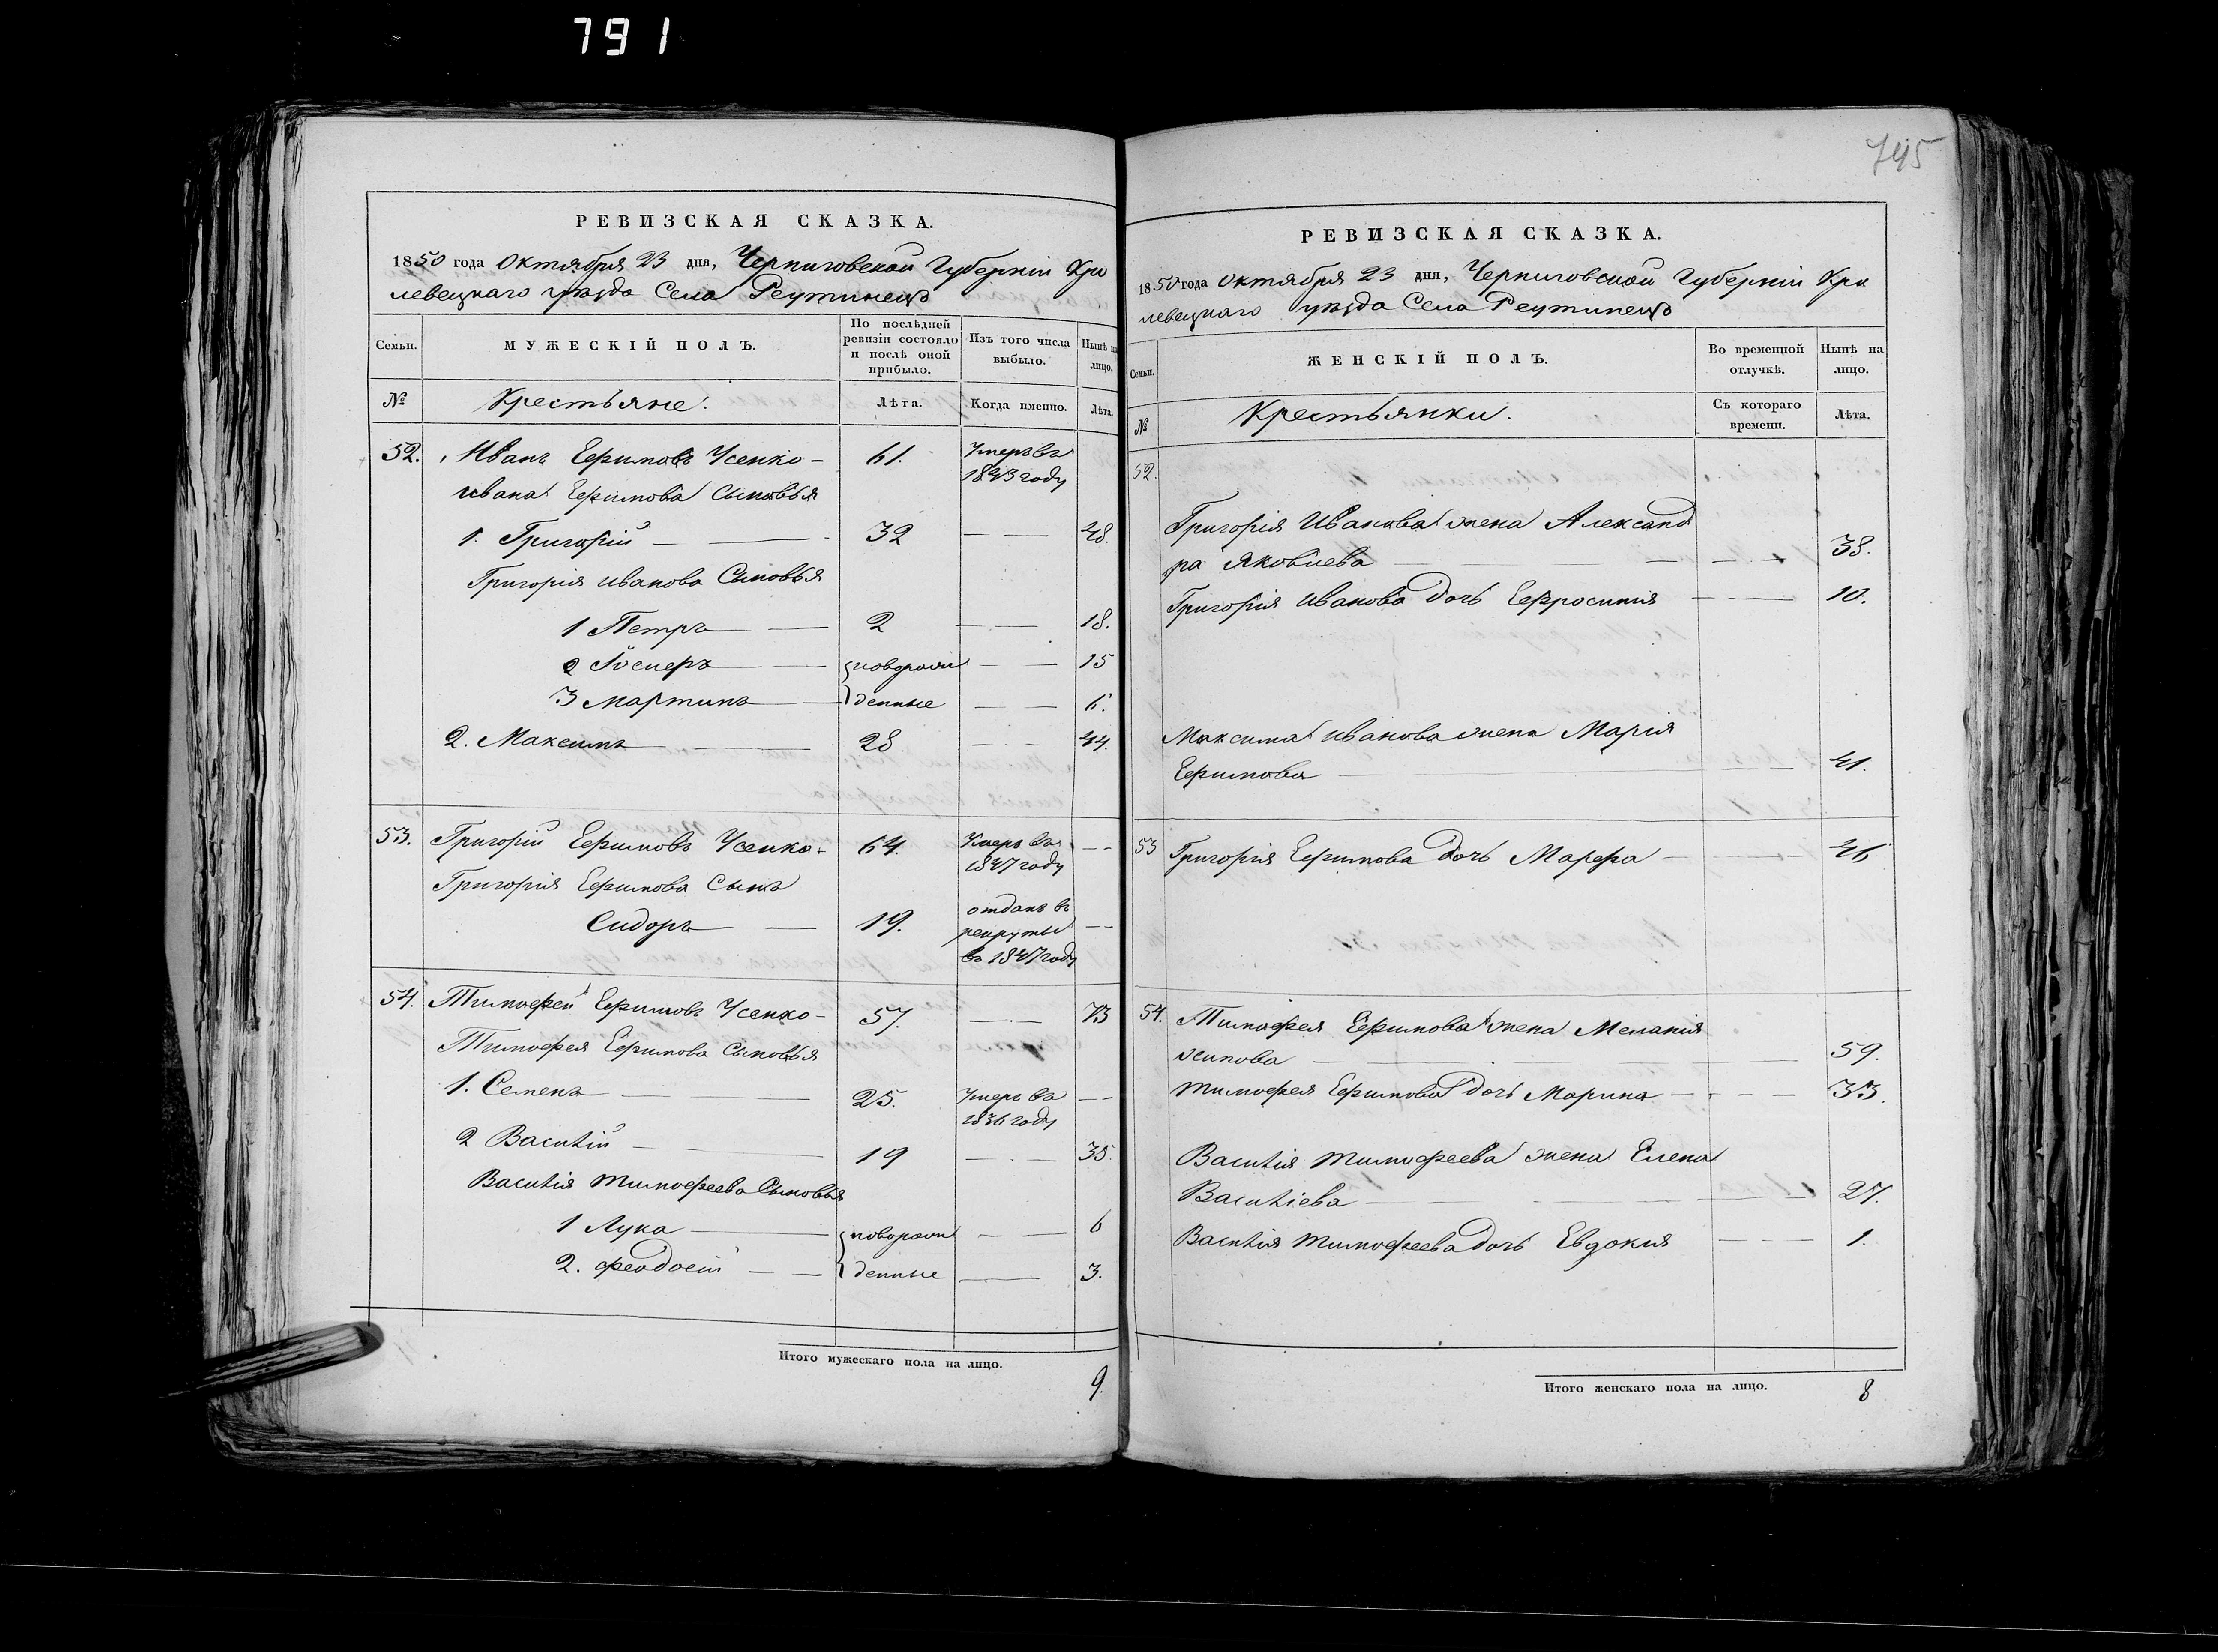 791
745
РЕВИЗСКАЯ СКАЗКА.
1850 года Октября 23 дня, Черниговской Губернiи Кро
левецкаго уѣзда Села Реутинецъ
Семьи. МУЖЕСКIЙ ПОЛЪ. По послѣдней ревизiи состояло и послѣ оной прибыло. Изъ того числа выбыло. Нынѣ на лицо.
№ Крестьяне. Лѣта. Когда именно. Лѣта.
52. Иванъ Ефимовъ Усенко – 61. Умеръ въ 1843 году
Ивана Ефимова Сыновья
1. Григорiй 32 48.
Григорiя Иванова Сыновья
1 Петръ 2 18.
2 {новорож 15
3 Мартинъ {денные 6.
2. Максимъ 28 44.
53. Григорiй Ефимовъ Усенко – 64. Умеръ въ 1847 году
Григорiя Ефимова Сынъ
Сидоръ 19. отданъ въ рекруты въ 1847 году
54. Тимофей Ефимовъ Усенко – 57. 73
Тимофея Ефимова Сыновья
1. Семенъ 25. Умеръ въ 1836 году
2 Василiй 19 35.
Василiя Тимофеева Сыновья
1 Лука {новорож 6
2. Феодосiй {денные 3.
Итого мужескаго пола на лицо.
9.
РЕВИЗСКАЯ СКАЗКА.
1850 года Октября 23 дня, Черниговской Губернiи Кро
левецкаго уѣзда Села Реутинецъ
Семьи. ЖЕНСКIЙ ПОЛЪ. Во временной отлучкѣ. Нынѣ на лицо.
№ Крестьянки. Съ котораго времени. Лѣта.
52.
Григорiя Иванова жена Александ
ра Яковлева 38.
Григорiя Иванова дочь Ефросинiя 10.
Максима Иванова жена Марiя
Ефимова 41.
53 Григорiя Ефимова дочь Марфа 46
54. Тимофея Ефимова жена Меланiя
Осипова 59.
Тимофея Ефимова дочь Марина 33.
Василiя Тимофеева жена Елена
Василiева 27.
Василiя Тимофеева дочь Евдокия 1.
Итого женскаго пола на лицо.
8